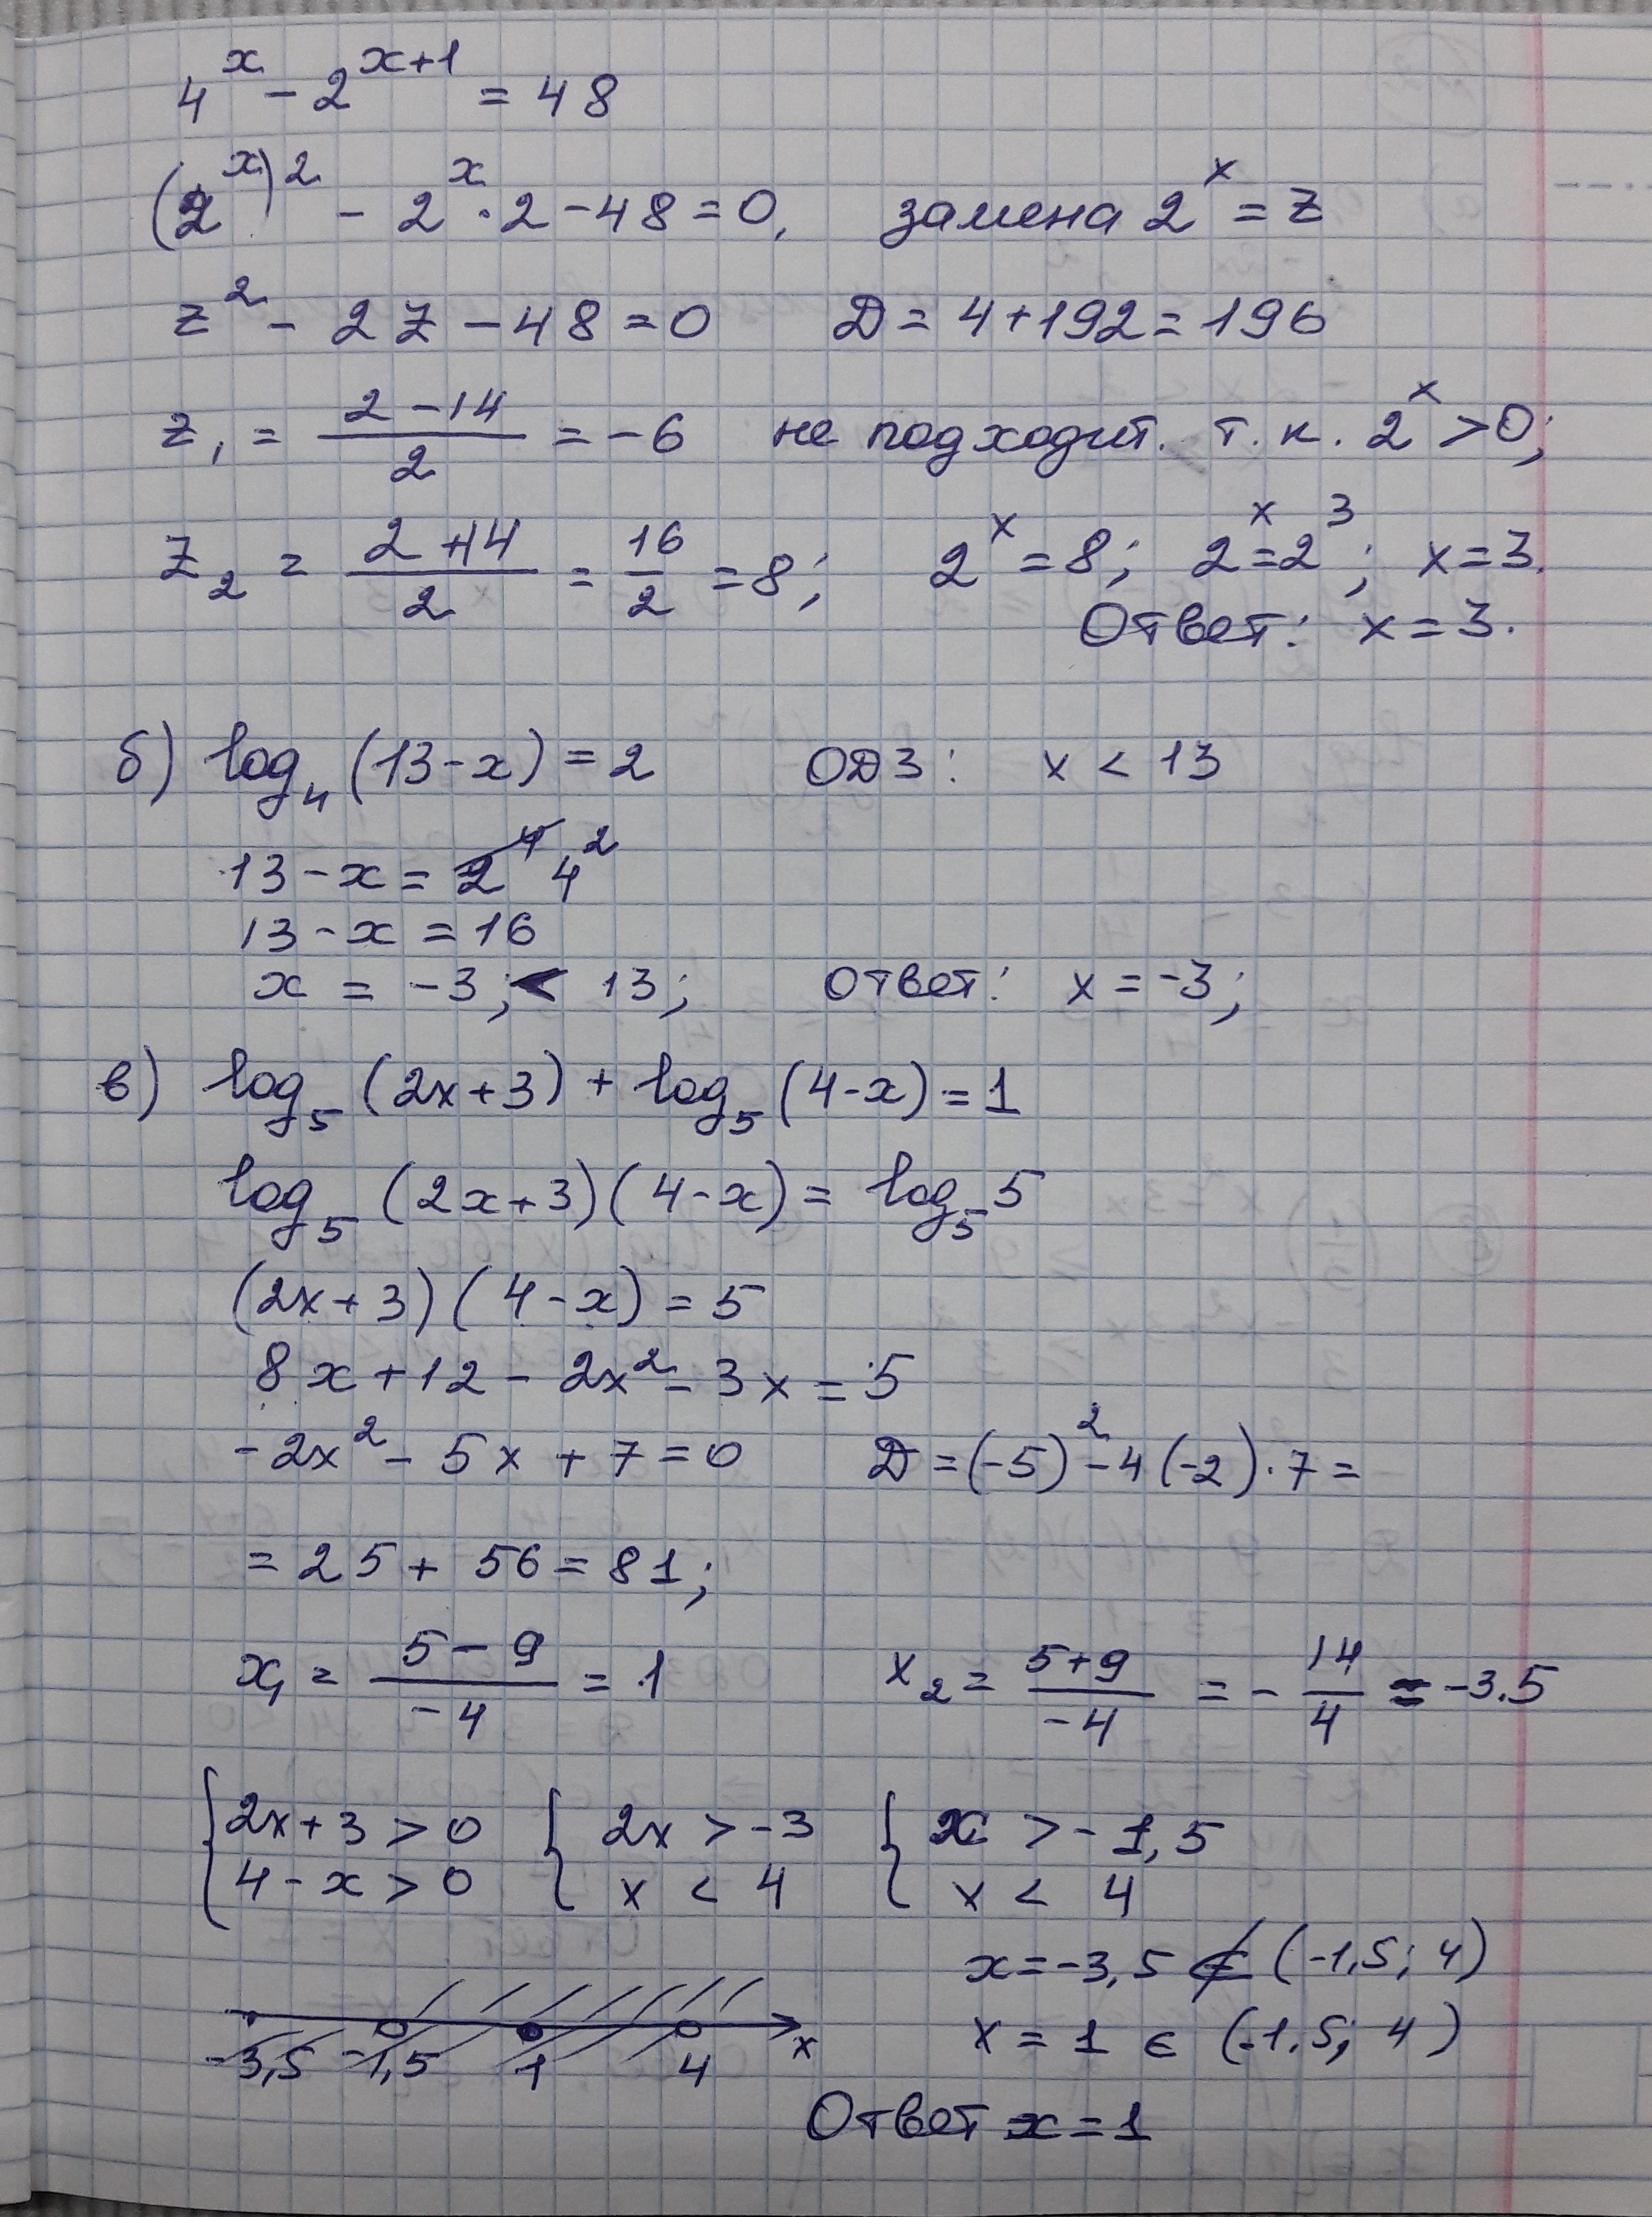 4^x - 2^(x+1) = 48
(2^x)^2 - 2^x · 2 - 48 = 0, замена 2^x = z
z^2 - 2z - 48 = 0 D = 4 + 192 = 196
z₁ = (2 - 14)/2 = -6 не подходит. т.к. 2^x > 0;
z₂ = (2 + 14)/2 = 16/2 = 8; 2^x = 8; 2^x = 2^3; x = 3.
Ответ: x = 3.
б) log₄(13 - x) = 2 ОДЗ: x < 13
13 - x = 4^2
13 - x = 16
x = -3; < 13; Ответ: x = -3;
в) log₅(2x + 3) + log₅(4 - x) = 1
log₅(2x + 3)(4 - x) = log₅5
(2x + 3)(4 - x) = 5
8x + 12 - 2x^2 - 3x = 5
-2x^2 - 5x + 7 = 0 D = (-5)^2 - 4(-2) · 7 =
= 25 + 56 = 81;
x₁ = (5 - 9)/-4 = 1 x₂ = (5 + 9)/-4 = -14/4 = -3.5
{2x + 3 > 0 {2x > -3 {x > -1,5
4 - x > 0 x < 4 x < 4
x = -3,5 ∉ (-1,5; 4)
-3,5 -1,5 1 4 x
x = 1 ∈ (-1.5; 4)
Ответ x = 1